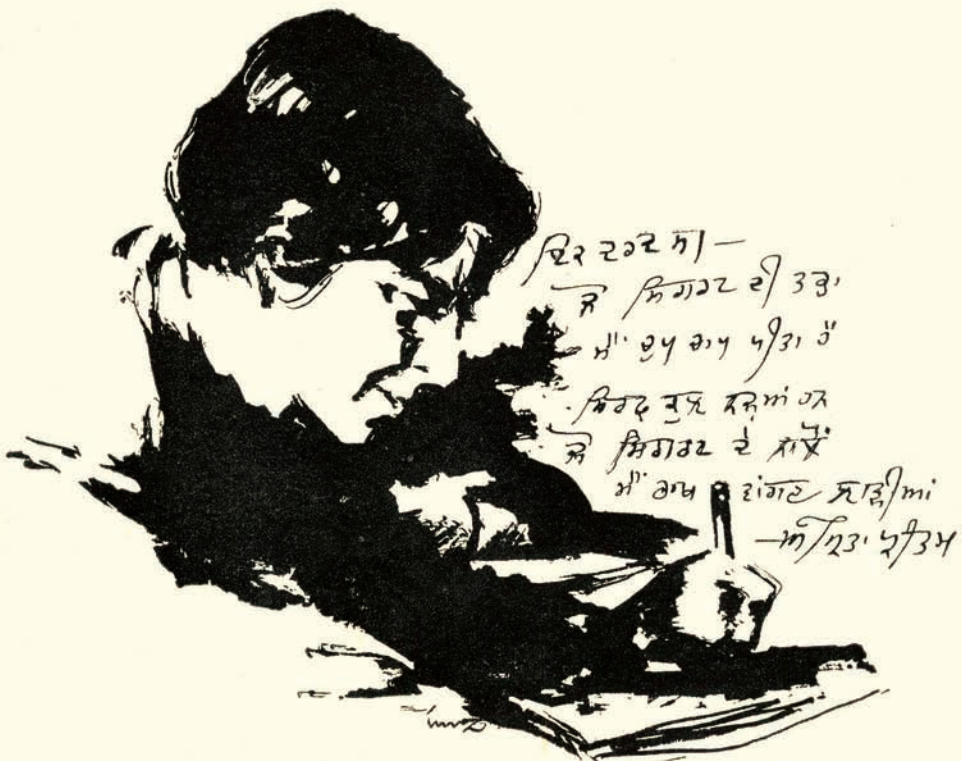 ਇਕ ਦਰਦ ਸੀ —
ਜੋ ਸਿਗਰਟ ਦੀ ਤਰ੍ਹਾਂ
ਮੈਂ ਚੁਪ ਚਾਪ ਪੀਤਾ ਹੈ
ਸਿਰਫ਼ ਕੁਝ ਨਜ਼ਮਾਂ ਹਨ
ਜੋ ਸਿਗਰਟ ਦੇ ਨਾਲੋਂ
ਮੈਂ ਰਾਖ ਵਾਂਗਣ ਝਾੜੀਆਂ
— ਅੰਮ੍ਰਿਤਾ ਪ੍ਰੀਤਮ